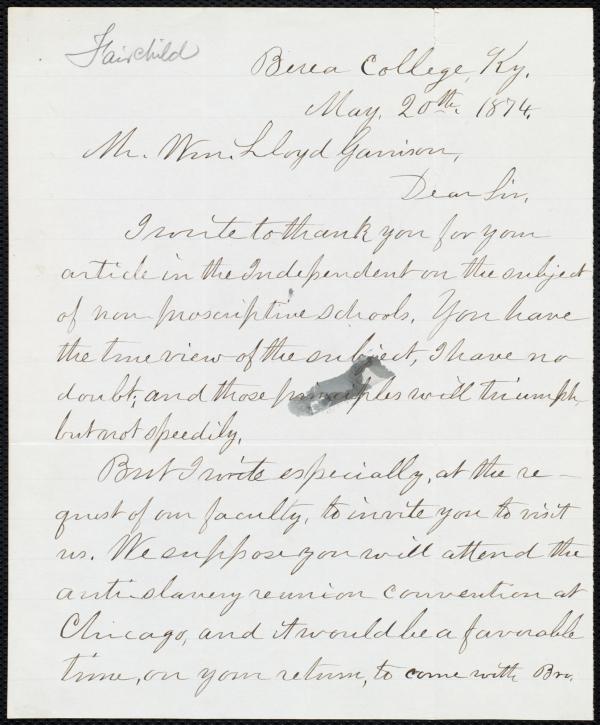 Fairchild
Berea College, Ky.
May. 20th. 1874.
Mr. Wm. Lloyd Garrison,
Dear Sir,
I write to thank you for your
article in the Independent on the subject
of non-proscriptive schools. You have
the true view of the subject, I have no
doubt; and those principles will triumph,
but not speedily.
But I write especially, at the re-
quest of our faculty, to invite you to visit
us. We suppose you will attend the
anti-slavery reunion convention at
Chicago, and it would be a favorable
time, on your return, to come with Bro.